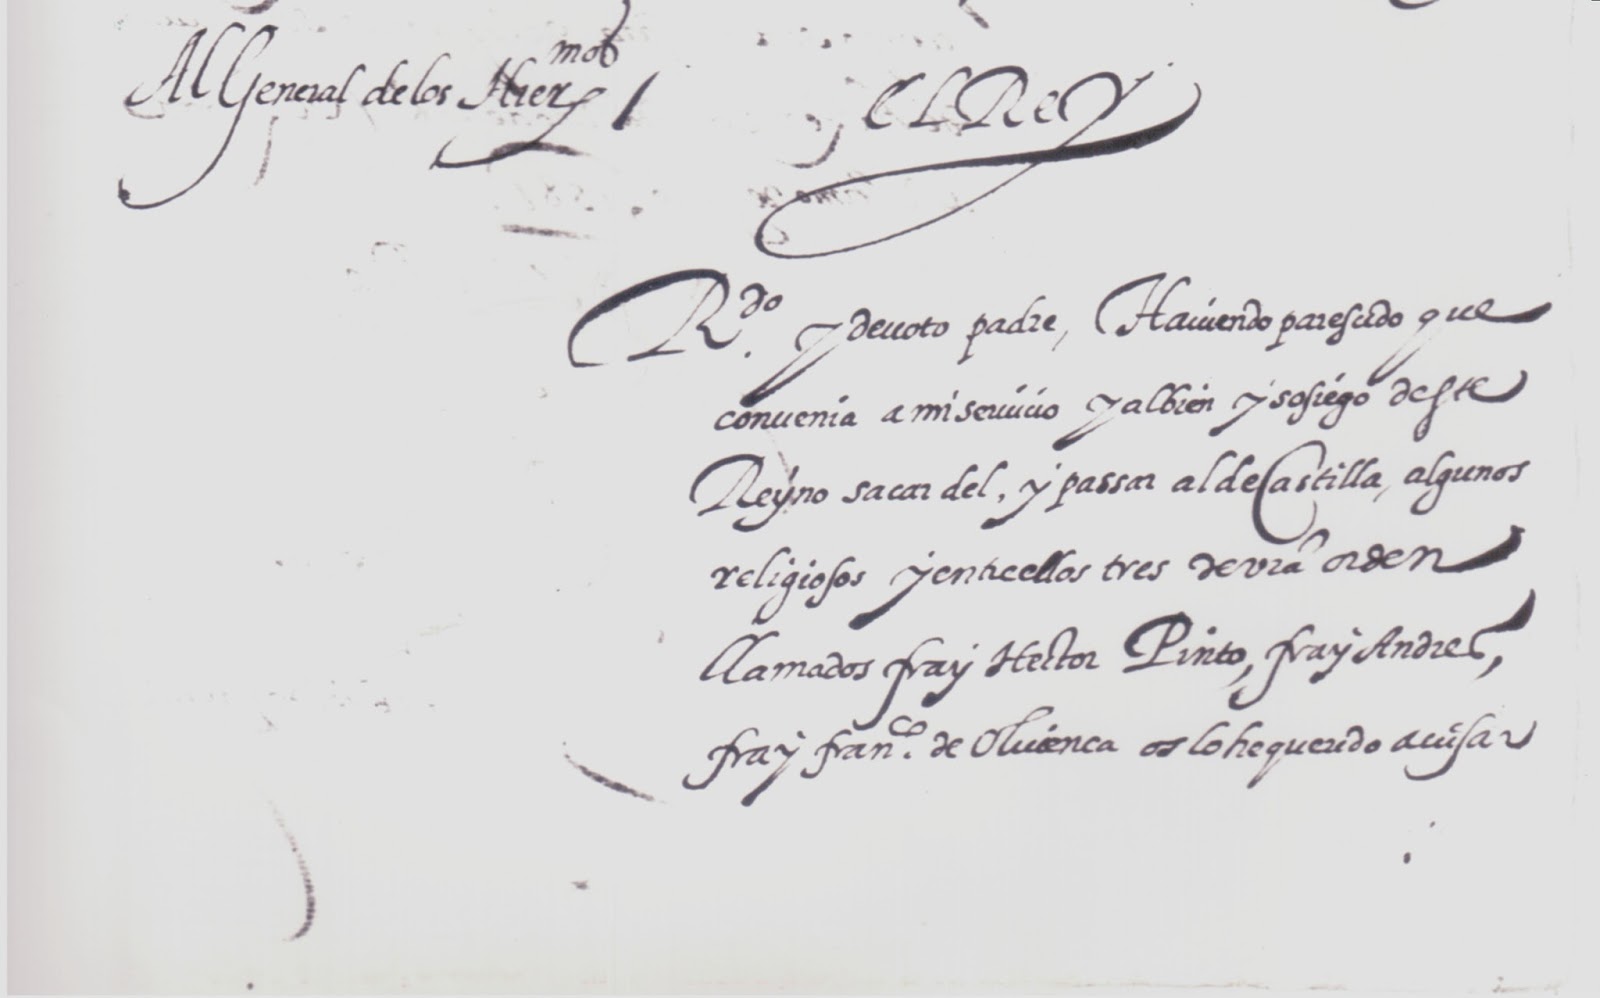 Al General de los Hier.mos
El Rey
R.do y deuoto padre, Hauiendo parescido que
conuenia a mi seruicio y al bien y sosiego deste
Reyno sacar del, y passar al de Castilla, algunos
religiosos y entre ellos tres de vra orden
llamados fray Hector Pinto, fray Andres,
fray fran.co de Oliuenca os lo he querido auisar